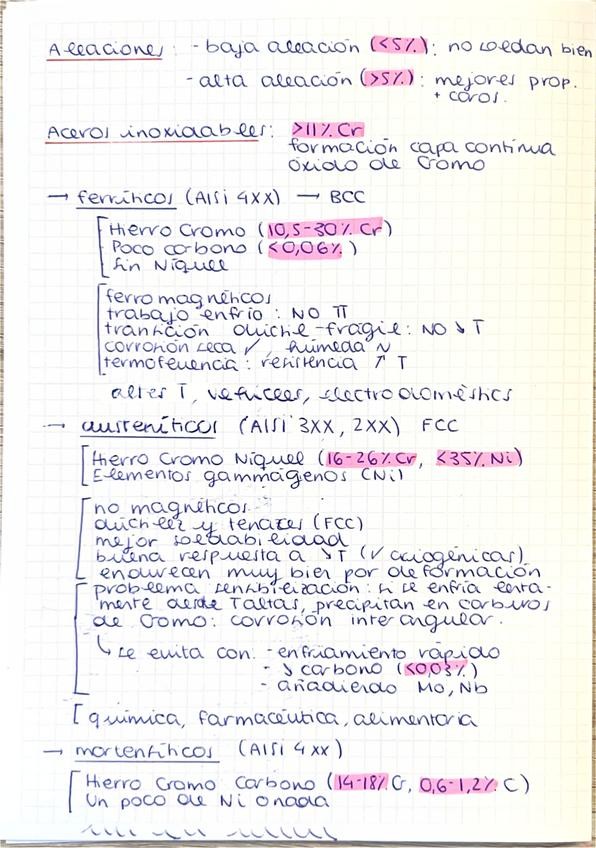 Aleaciones: - baja aleación (<5%): no soldan bien
- alta aleación (>5%): mejores prop.
+ caros.
Aceros inoxidables: >11% Cr
formación capa continua
óxido de Cromo
→ ferríticos (AISI 4XX) → BCC
Hierro Cromo (10,5-30% Cr)
Poco carbono (<0,06%)
Sin Níquel
ferromagnéticos
trabajo enfrío: NO TT
transición dúctil-frágil: NO ↘ T
corrosión seca ✓ húmeda ~
termofluencia: resistencia ↗ T
altas T, vehículos, electrodomésticos
→ austeníticos (AISI 3XX, 2XX) FCC
Hierro Cromo Níquel (16-26% Cr, <35% Ni)
Elementos gammágenos (Ni)
no magnéticos
dúctiles y tenaces (FCC)
mejor soldabilidad
buena respuesta a ↘ T (✓ criogénicas)
endurecen muy bien por deformación
problema sensibilización: si se enfría lenta-
mente desde Taltas, precipitan en carburos
de Cromo: corrosión intergranular.
↳ se evita con: - enfriamiento rápido
- ↘ carbono (<0,03%)
- añadiendo Mo, Nb
[química, farmacéutica, alimentaria
→ martensíticos (AISI 4xx)
Hierro Cromo Carbono (14-18% Cr, 0,6-1,2% C)
Un poco de Ni o nada